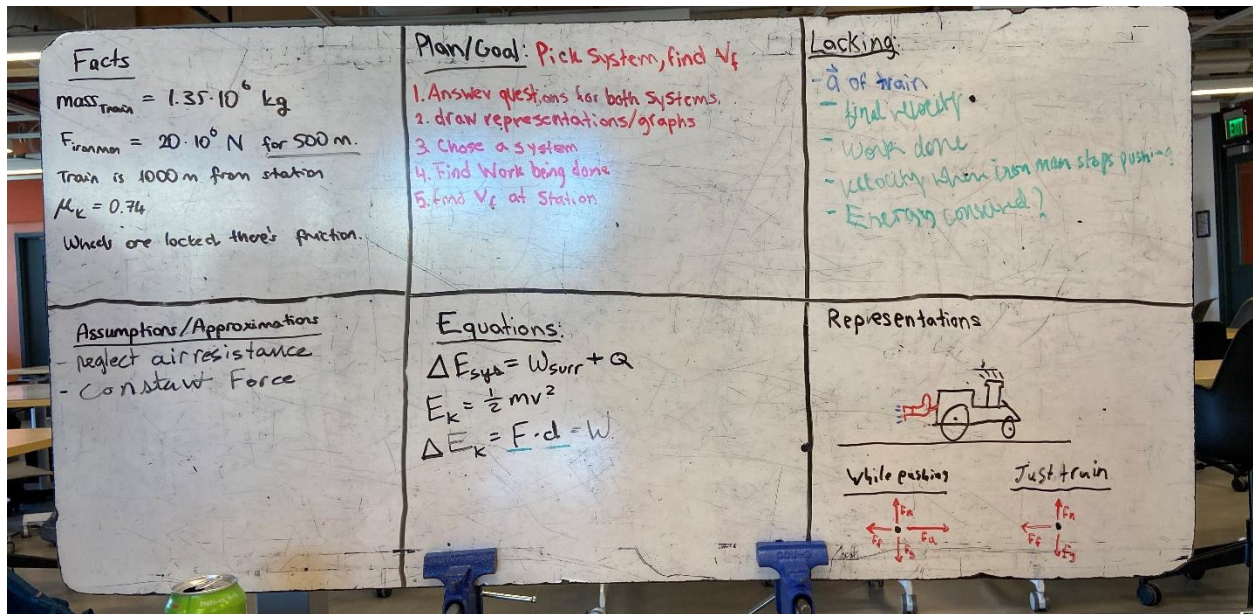 Facts
mass Train = 1.35·10⁶ kg
F ironman = 20·10⁶ N for 500 m.
Train is 1000 m from station
μₖ = 0.74
Wheels are locked there's friction.
Plan/Goal: Pick System, find Vf
1. Answer questions for both systems.
2. draw representations/graphs
3. Chose a system
4. Find Work being done
5. find Vf at Station
Lacking:
- a⃗ of train
- final velocity
- Work done
- velocity when iron man stops pushing?
- Energy consured?
Assumptions/Approximations
- neglect air resistance
- Constant Force
Equations:
ΔEsys = Wsurr + Q
Eₖ = ½ mv²
ΔEₖ = F·d = W
Representations
While pushing
Fn
Ff
Fa
Fg
Just train
Fn
Ff
Fg
EXIT